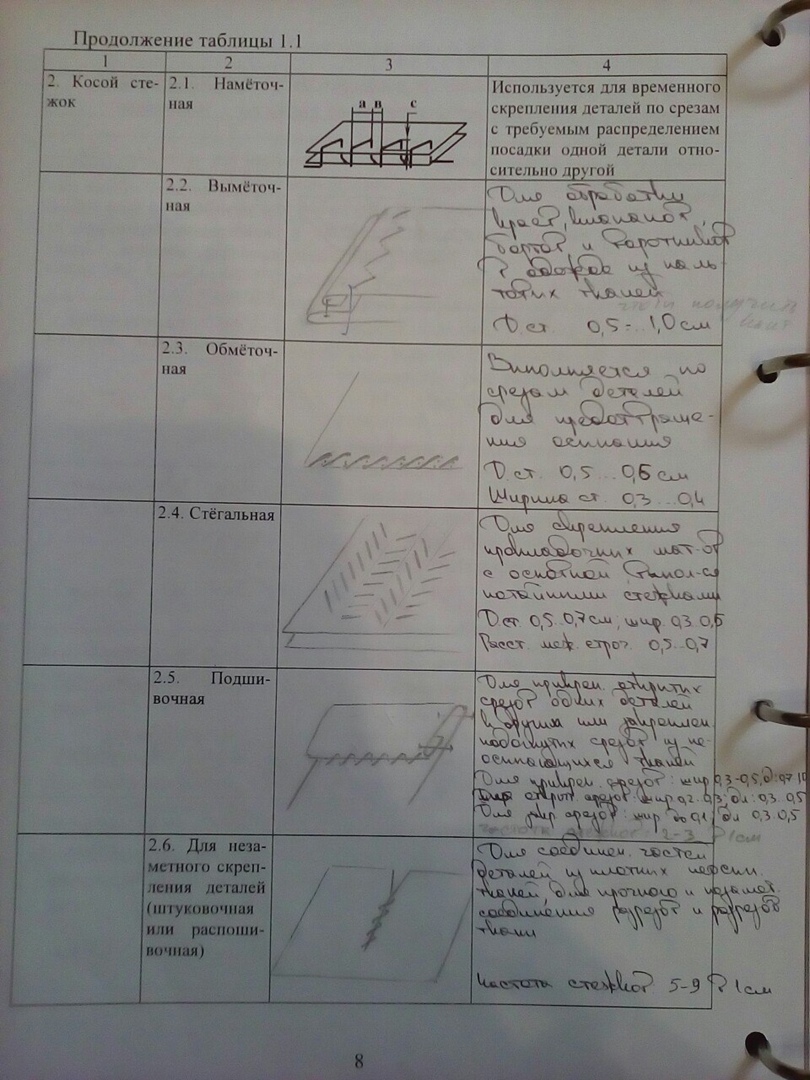 Продолжение таблицы 1.1
1 2 3 4
2. Косой сте-
жок
2.1. Намёточ-
ная
а в с
Используется для временного
скрепления деталей по срезам
с требуемым распределением
посадки одной детали отно-
сительно другой
2.2. Вымёточ-
ная
Для обработки
краёв, клапанов,
бортов и воротников
в одежде из паль-
товых тканей
чтобы получить
кант
D ст. 0,5-..1,0 см
2.3. Обмёточ-
ная
Выполняется по
срезам деталей
для предотвраще-
ния осыпания
D ст. 0,5...0,6 см
Ширина ст. 0,3...0,4
2.4. Стёгальная
Для скрепления
прокладочных мат-ов
с основной, выпол-ся
потайными стежками
D ст. 0,5..0,7 см; шир. 0,3..0,5
Расст. меж. строч. 0,5..0,7
2.5. Подши-
вочная
Для прикреп. открытых
срезов одних деталей
к другим или закреплен.
подогнутых срезов из не-
осыпающихся тканей
Для прикреп. срезов: шир 0,3-0,5, д: 0,7.1,0
открыт. срезов: шир 0,2..0,3; дл: 0,3..0,5
Для закр срезов: шир до 0,1, дл 0,3..0,5
частота стежков 2-3 в 1 см
2.6. Для неза-
метного скреп-
ления деталей
(штуковочная
или распоши-
вочная)
Для соединен. частей
деталей из плотных
тканей, для прочного и незамет.
соединения разрезов и разрезов
ткани
частота стежков 5-9 в 1 см
8